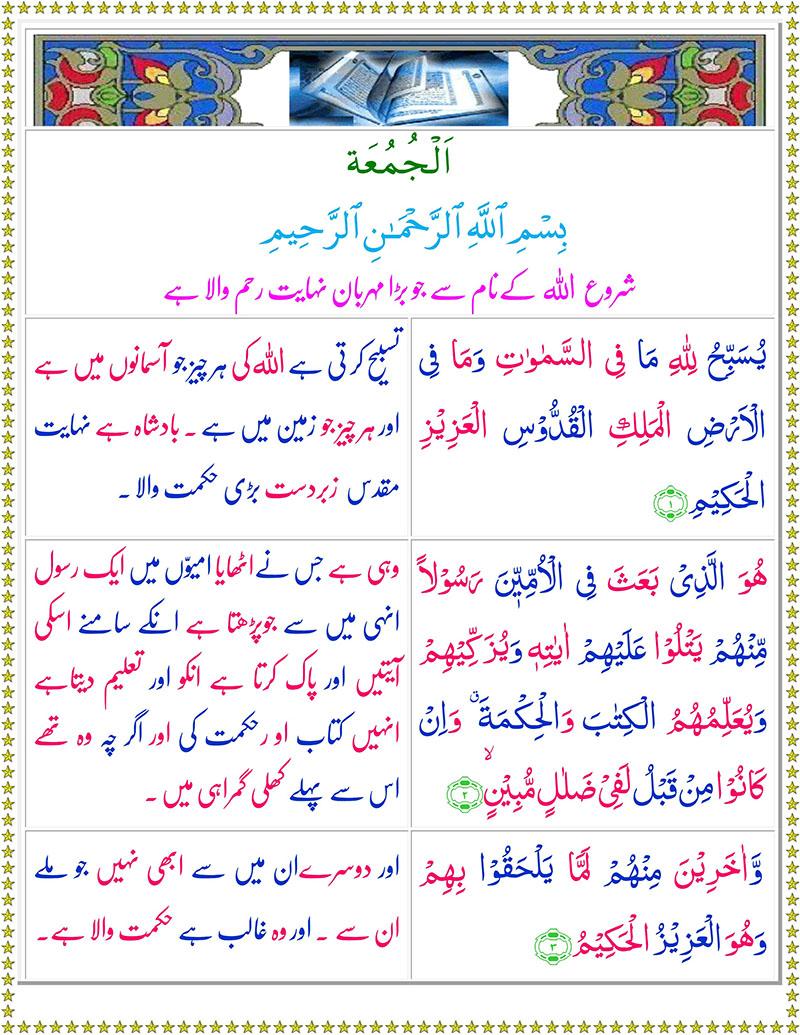 اَلْجُمُعَة
بِسْمِ ٱللَّهِ ٱلرَّحْمَـٰنِ ٱلرَّحِيمِ
شروع اللہ کے نام سے جو بڑا مہربان نہایت رحم والا ہے
يُسَبِّحُ لِلّٰهِ مَا فِى السَّمٰوٰتِ وَمَا فِى
الْاَرْضِ الْمَلِكِ الْقُدُّوْسِ الْعَزِيْزِ
الْحَكِيْمِ ﴿۱﴾
تسبیح کرتی ہے اللہ کی ہر چیز جو آسمانوں میں ہے
اور ہر چیز جو زمین میں ہے ۔ بادشاہ ہے نہایت
مقدس زبردست بڑی حکمت والا ۔
هُوَ الَّذِىْ بَعَثَ فِى الْاُمِّيّٖنَ رَسُوْلًا
مِّنْهُمْ يَتْلُوْا عَلَيْهِمْ اٰيٰتِهٖ وَيُزَكِّيْهِمْ
وَيُعَلِّمُهُمُ الْكِتٰبَ وَالْحِكْمَةَ ۗ وَاِنْ
كَانُوْا مِنْ قَبْلُ لَفِىْ ضَلٰلٍ مُّبِيْنٍ ۙ ﴿۲﴾
وہی ہے جس نے اٹھایا امیوّں میں ایک رسول
انہی میں سے جو پڑھتا ہے انکے سامنے اسکی
آیتیں اور پاک کرتا ہے انکو اور تعلیم دیتا ہے
انہیں کتاب او ر حکمت کی اور اگر چہ وہ تھے
اس سے پہلے کھلی گمراہی میں ۔
وَّاٰخَرِيْنَ مِنْهُمْ لَمَّا يَلْحَقُوْا بِهِمْ
وَهُوَ الْعَزِيْزُ الْحَكِيْمُ ﴿۳﴾
اور دوسرے ان میں سے ابھی نہیں جو ملے
ان سے ۔ اور وہ غالب ہے حکمت والا ہے ۔